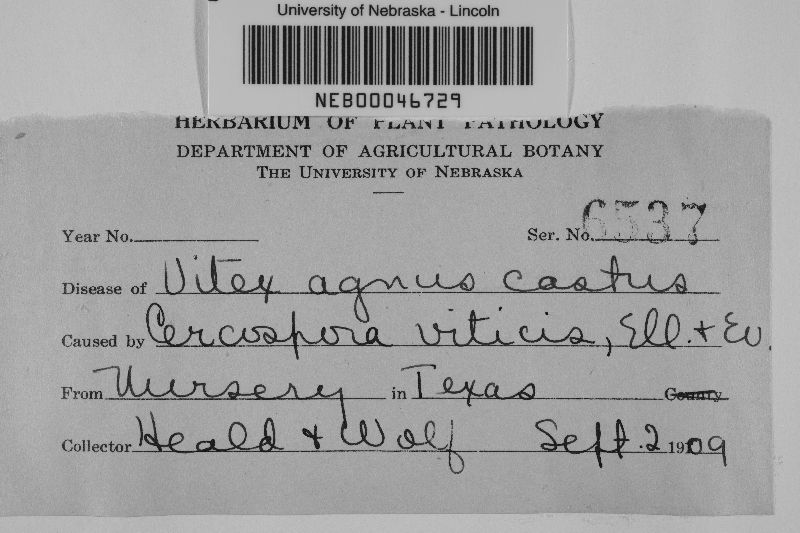 University of Nebraska - Lincoln
NEB00046729
HERBARIUM OF PLANT PATHOLOGY
DEPARTMENT OF AGRICULTURAL BOTANY
THE UNIVERSITY OF NEBRASKA
Year No. Ser. No. 6537
Disease of Vitex agnus castus
Caused by Cercospora viticis, Ell. & Ev.
From Nursery in Texas County
Collector Heald & Wolf Sept. 2 1909